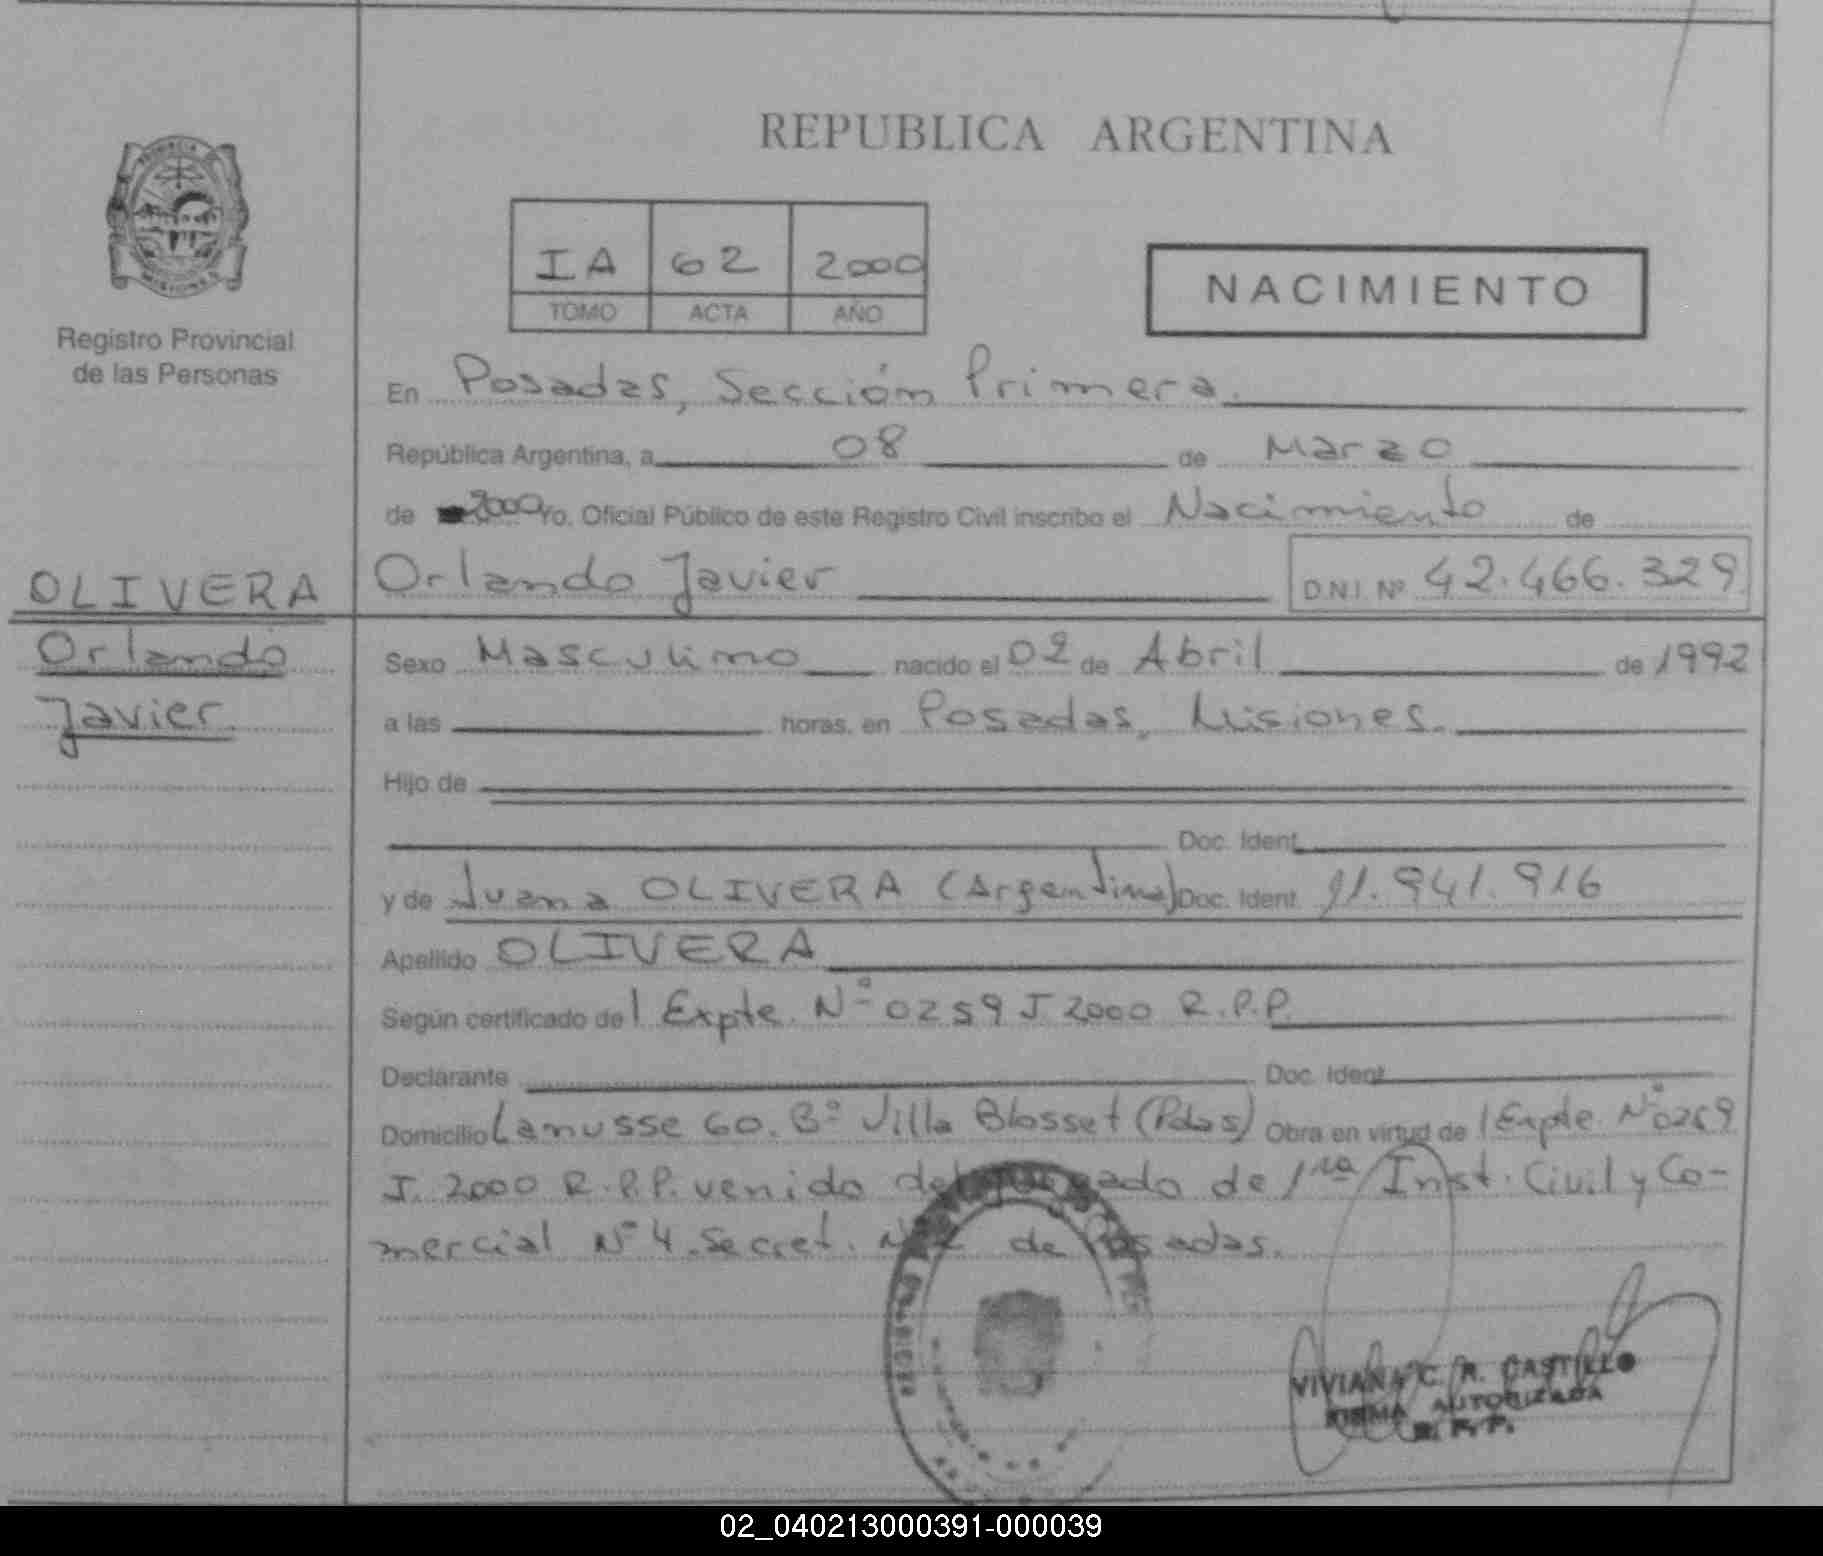 REPUBLICA ARGENTINA
PROVINCIA DE
MISIONES
Registro Provincial
de las Personas
IA 62 2000
TOMO ACTA AÑO
NACIMIENTO
En Posadas, Sección Primera.
República Argentina, a 08 de Marzo
de 2000 Yo. Oficial Público de este Registro Civil inscribo el Nacimiento de
Orlando Javier D.N.I. Nº 42.466.329
OLIVERA
Orlando
Javier
Sexo Masculino nacido el 02 de Abril de 1992
a las horas, en Posadas, Misiones.
Hijo de
Doc. Ident.
y de Juana OLIVERA (Argentina) Doc. Ident. 11.941.916
Apellido OLIVERA
Según certificado del Expte. Nº 0259 J 2000 R.P.P.
Declarante Doc. Ident.
Domicilio Lanusse 60. Bº Villa Blosset (Pdas) Obra en virtud del Expte. Nº 0259
J. 2000 R.P.P. venido del Juzgado de 1ra Inst. Civil y Co-
mercial Nº 4. Secret. de Posadas.
REGISTRO
VIVIANA C. R. CASTILLO
FIRMA AUTORIZADA
R. P. P.
02_040213000391-000039